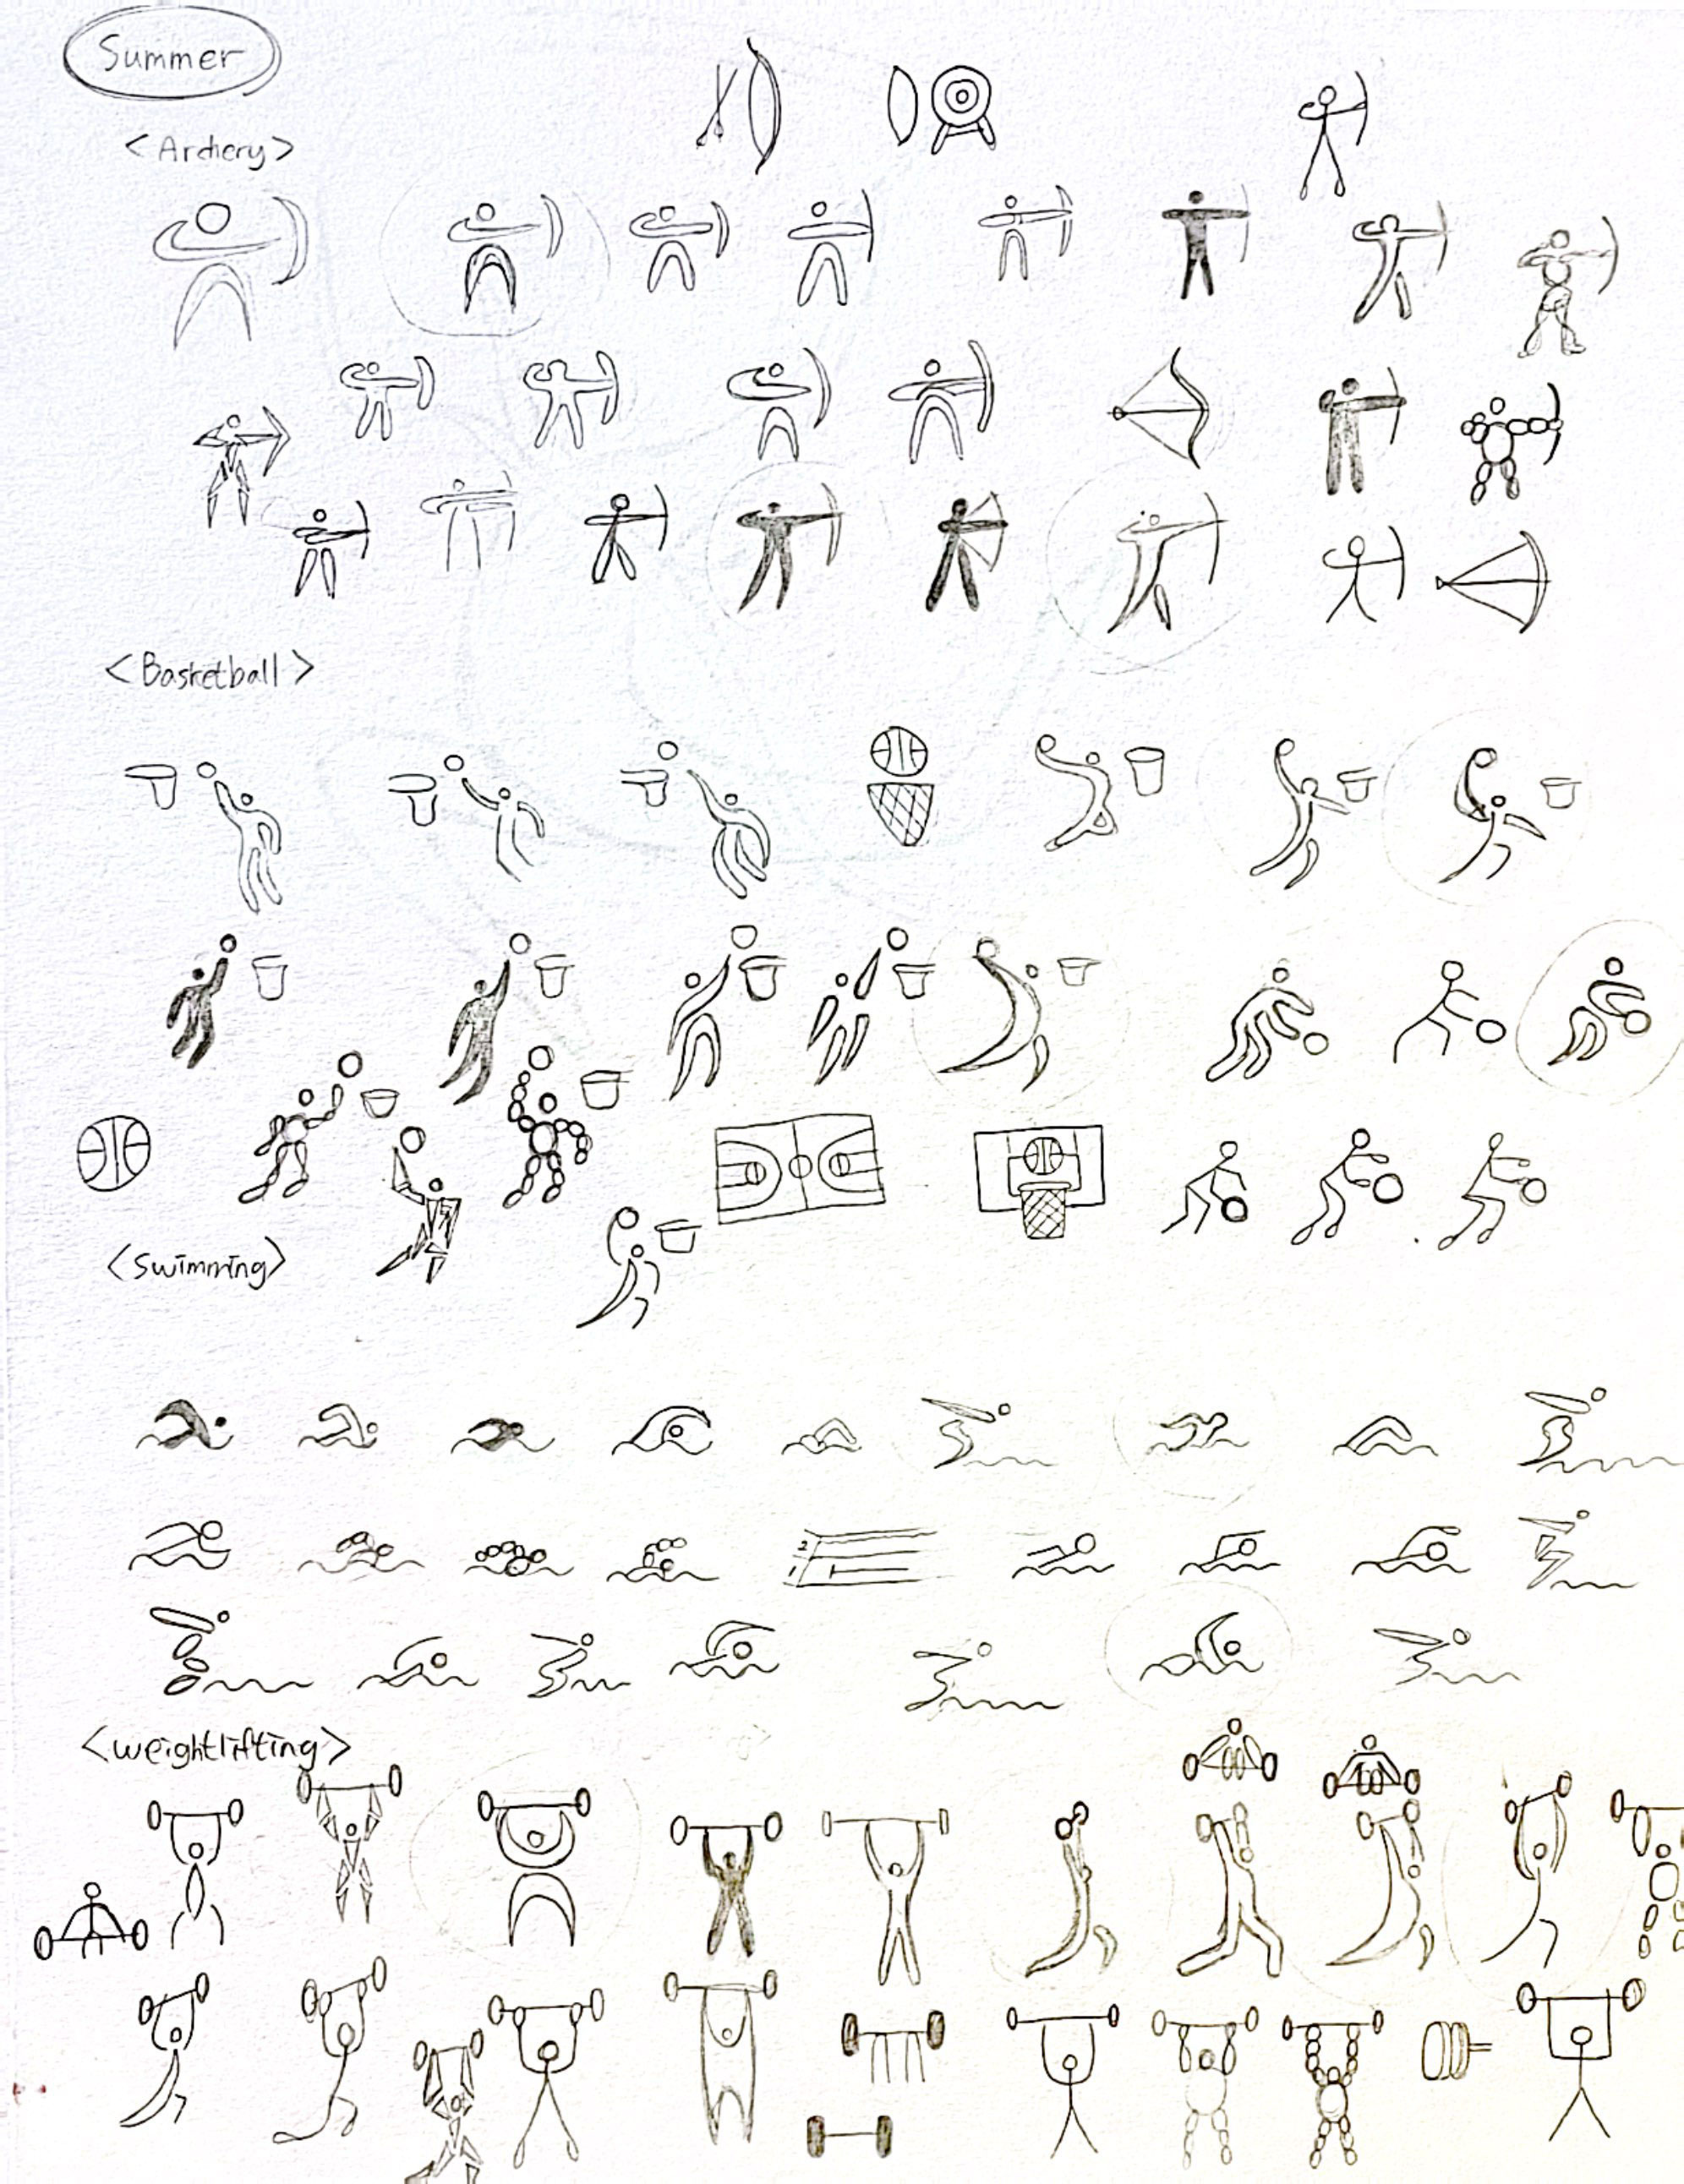 Summer
<Archery>
<Basketball>
<Swimming>
2
1
<weightlifting>